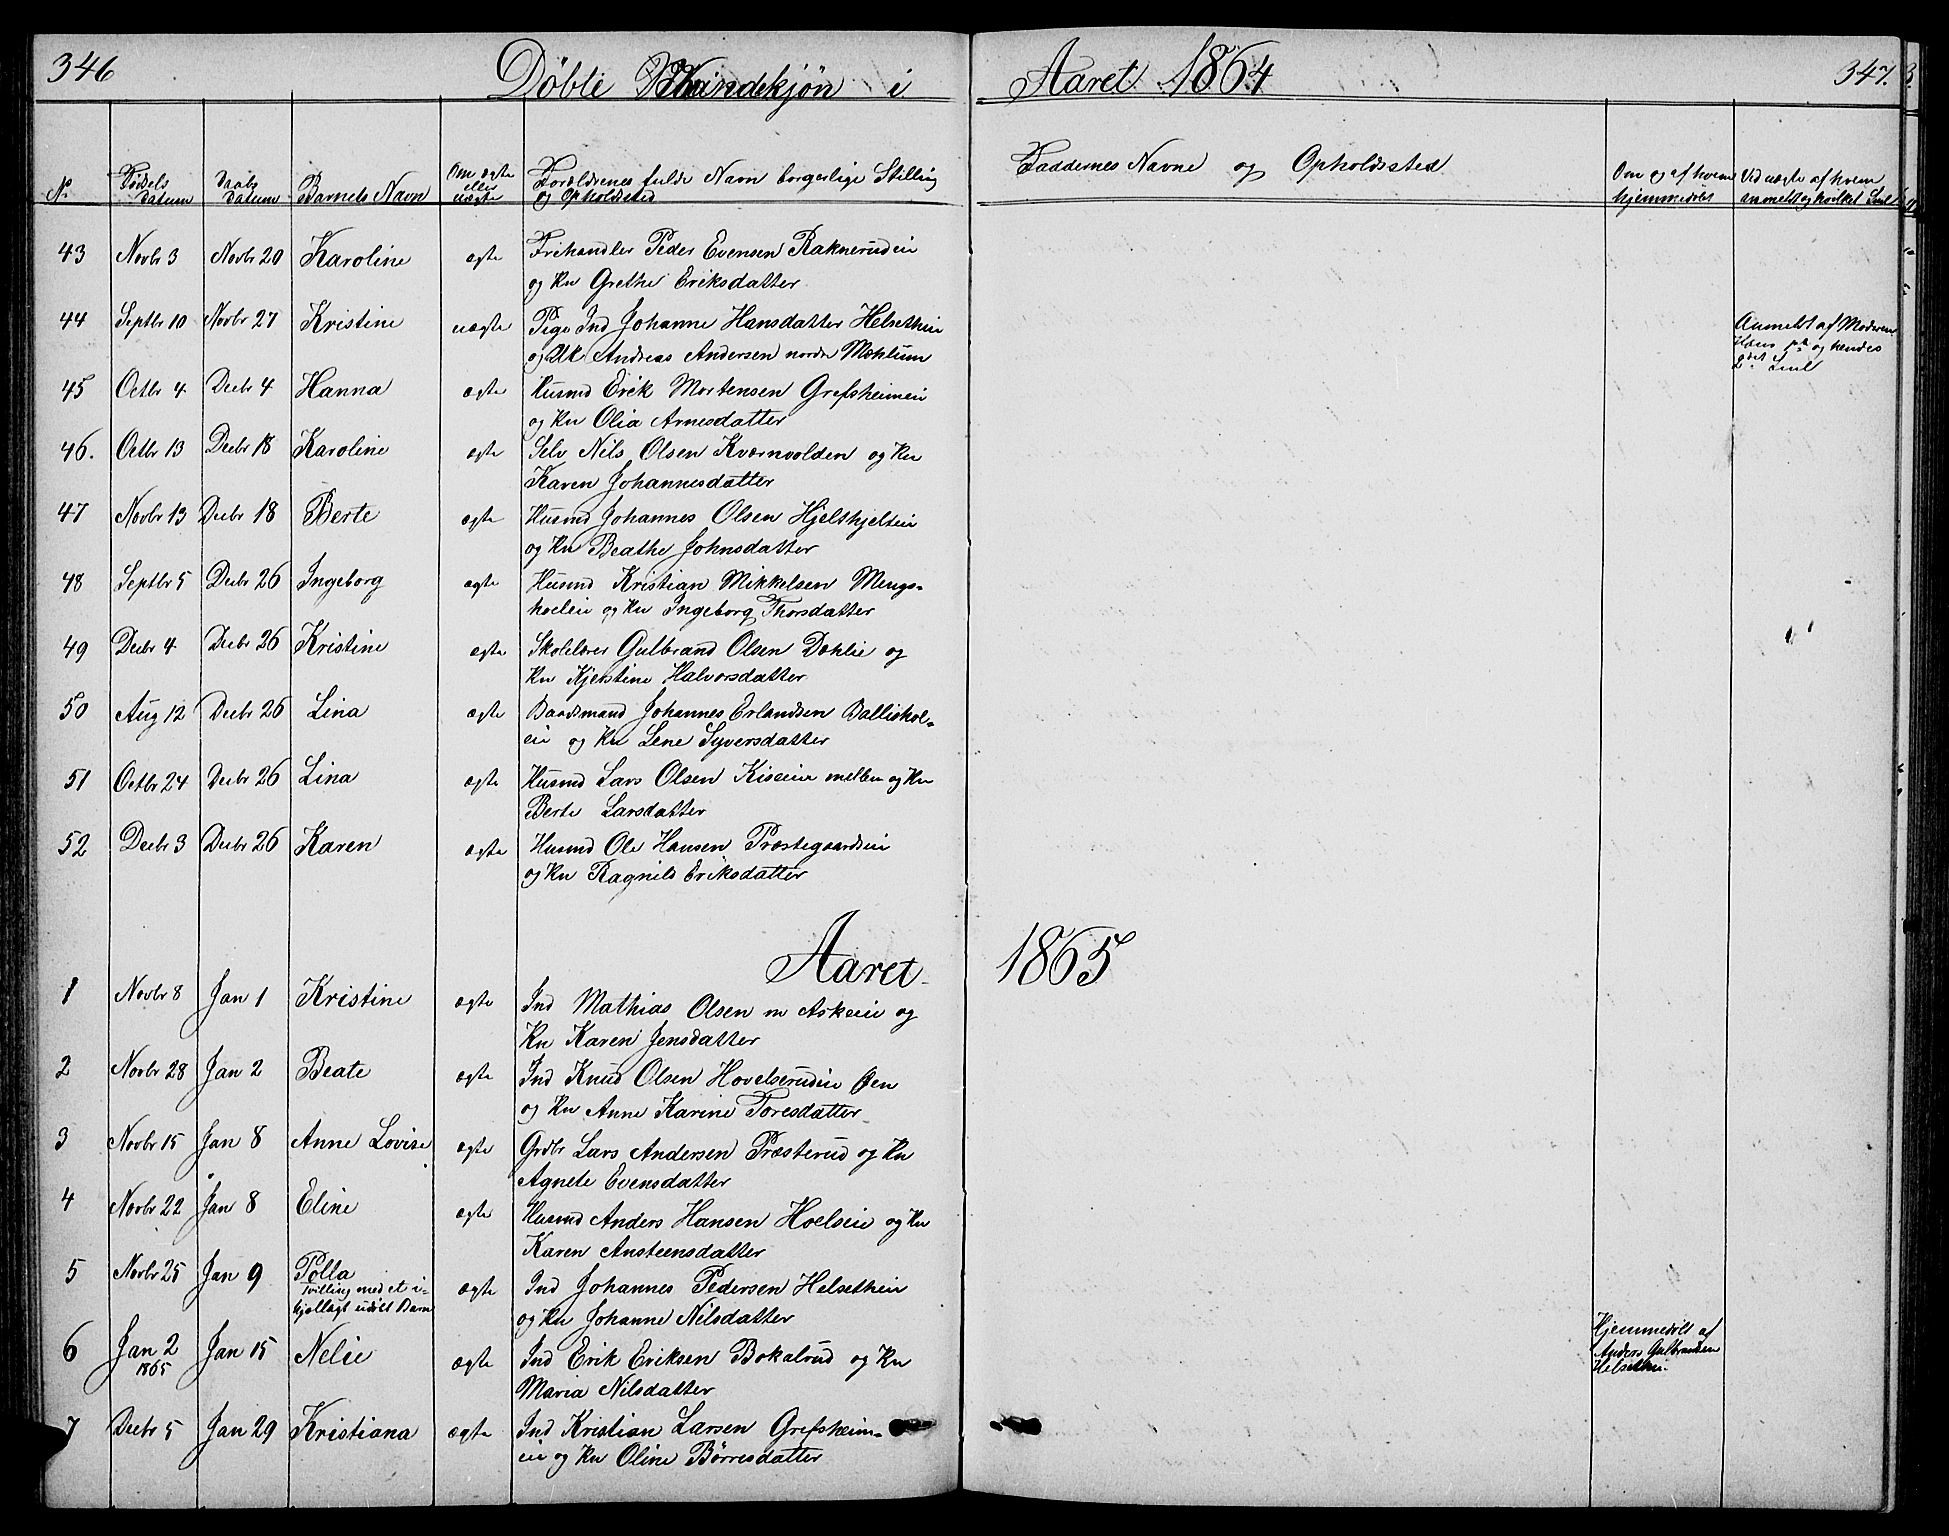 346
Døbte Kvindekjøn i Aaret 1864
347.
No
Fødsels Datum
Daabs Datum
Barnets Navn
Om ægte eller uægte
Forældrenes fulde Navn borgerlige Stilling og Opholdsted
Faddernes Navne og Opholdssted
Om og af hvem hjemmedøbt
Ved uægte af hvem anmeldt og hvilket Leiermaal
43 Novbr 3 Novbr 20 Karoline ægte Frihandler Peder Evensen Raknerudeie
og Ku Grethe Eriksdatter
44 Septbr 10 Novbr 27 Kristine uægte Pige Ind Johanne Hansdatter Helsetheie
og Uk Andreas Andersen nordre Mæhlum
Anmeldt af Moderen
Hans og hendes
2det Leml
45 Octbr 4 Decbr 4 Hanna ægte Husmd Erik Mortensen Grefsheimeie
og Ku Olia Arnesdatter
46. Octbr 13 Decbr 18 Karoline ægte Selv Nils Olsen Kværnvolden og Ku
Karen Johannesdatter
47 Novbr 13 Decbr 18 Berte ægte Husmd Johannes Olsen Hjelshjelteie
og Ku Beathe Johnsdatter
48 Septbr 5 Decbr 26 Ingeborg ægte Husmd Kristian Mikkelsen Mengs-
hoeleie og Ku Ingeborg Thorsdatter
49 Decbr 4 Decbr 26 Kristine ægte Skolelærer Gulbrand Olsen Dæhlie og
Ku Kjerstine Halvorsdatter
50 Aug 12 Decbr 26 Lina ægte Baadsmand Johannes Erlandsen Ballishol-
eie og Ku Lene Syversdatter
51 Octbr 24 Decbr 26 Lina ægte Husmd Lars Olsen Kiseeie mellem og Ku
Berte Larsdatter
52 Decbr 3 Decbr 26 Karen ægte Husmd Ole Hansen Præstegaardseie
og Ku Ragnild Eriksdatter
Aaret 1865
1 Novbr 8 Jan 1 Kristine ægte Ind Mathias Olsen m Askeie og
Ku Karen Jensdatter
2 Novbr 28 Jan 2 Beate ægte Ind Knud Olsen Hovelserudeie Øen
og Ku Anne Karine Toresdatter
3 Novbr 15 Jan 8 Anne Lovise ægte Grdbr Lars Andersen Præsterud og Ku
Agnete Evensdatter
4 Novbr 22 Jan 8 Eline ægte Husmd Anders Hansen Hoelseie og Ku
Karen Ansteensdatter
5 Novbr 25 Jan 9 Polla ægte Ind Johannes Pedersen Helsetheie
Tvilling med et i-
hjellagt udøbt Barn
og Ku Johanne Nilsdatter
6 Jan 2 1865 Jan 15 Nelie ægte Ind Erik Eriksen Bokalrud og Ku
Maria Nilsdatter
Hjemmedøbt af
Anders Gulbrandsen
Helsetheie.
7 Decbr 5 Jan 29 Kristiana ægte Ind Kristian Larsen Grefsheim-
eie og Ku Oline Børresdatter